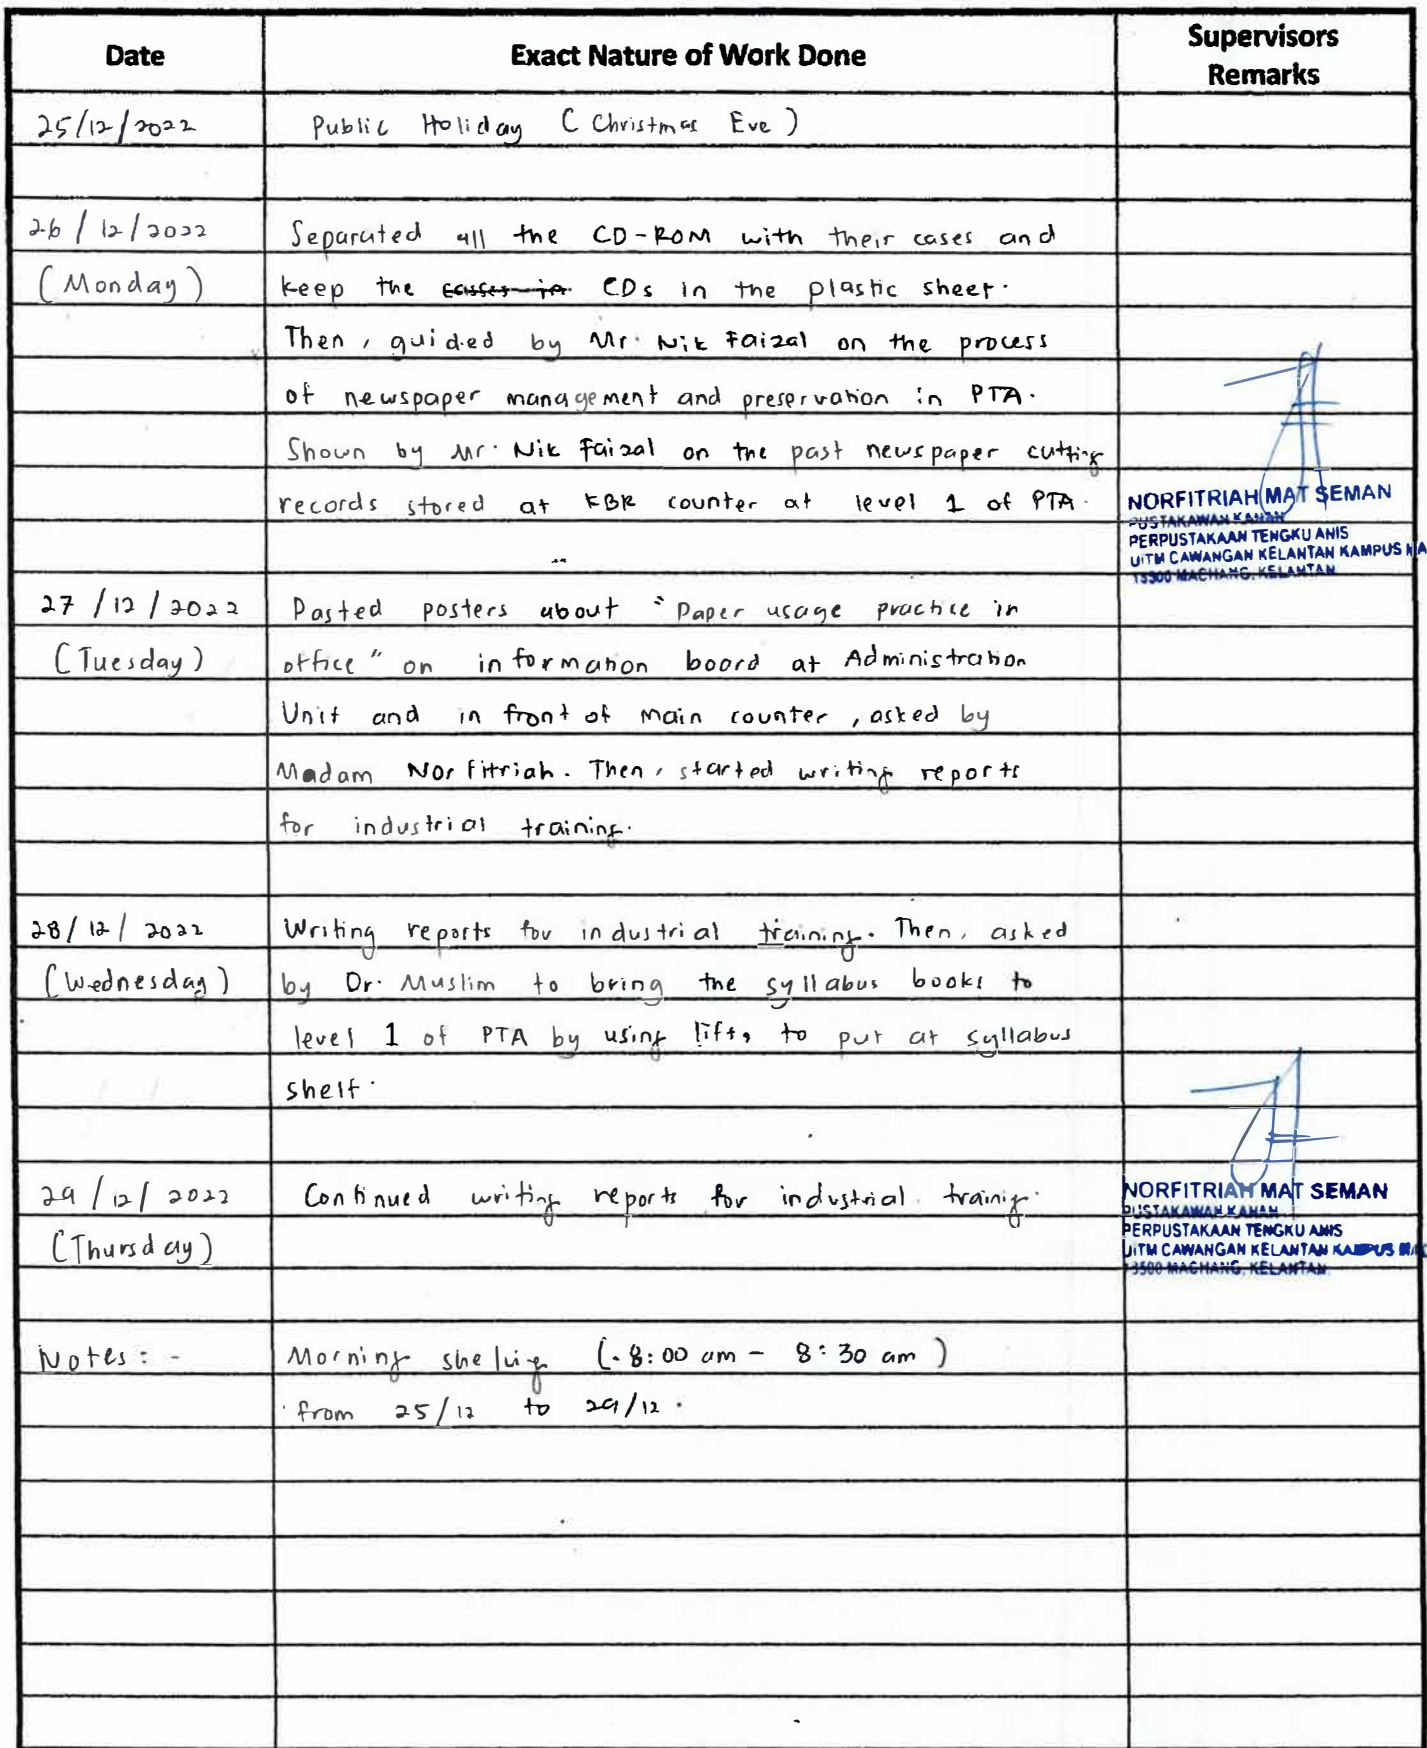 Date Exact Nature of Work Done Supervisors
Remarks
25/12/2022 Public Holiday ( Christmas Eve )
26 / 12 / 2022 Separated all the CD-ROM with their cases and
(Monday) keep the CDs in the plastic sheet.
Then, guided by Mr. Nik Faizal on the process
of newspaper management and preservation in PTA.
Shown by Mr. Nik Faizal on the past newspaper cutting
records stored at KBR counter at level 1 of PTA.
NORFITRIAH MAT SEMAN
PUSTAKAWAN KANAN
PERPUSTAKAAN TENGKU ANIS
UiTM CAWANGAN KELANTAN KAMPUS MA
18500 MACHANG, KELANTAN
27 / 12 / 2022 Pasted posters about "Paper usage practice in
(Tuesday) office" on information board at Administration
Unit and in front of main counter, asked by
Madam Nor Fitriah. Then, started writing reports
for industrial training.
28/ 12 / 2022 Writing reports for industrial training. Then, asked
(Wednesday) by Dr. Muslim to bring the syllabus books to
level 1 of PTA by using lift, to put at syllabus
shelf.
29 / 12 / 2022 Continued writing reports for industrial trainig.
(Thursday)
NORFITRIAH MAT SEMAN
PUSTAKAWAN KANAN
PERPUSTAKAAN TENGKU ANIS
UiTM CAWANGAN KELANTAN KAMPUS MAC
18500 MACHANG, KELANTAN
Notes : - Morning shelvig (.8:00 am - 8:30 am )
from 25/12 to 29/12 .